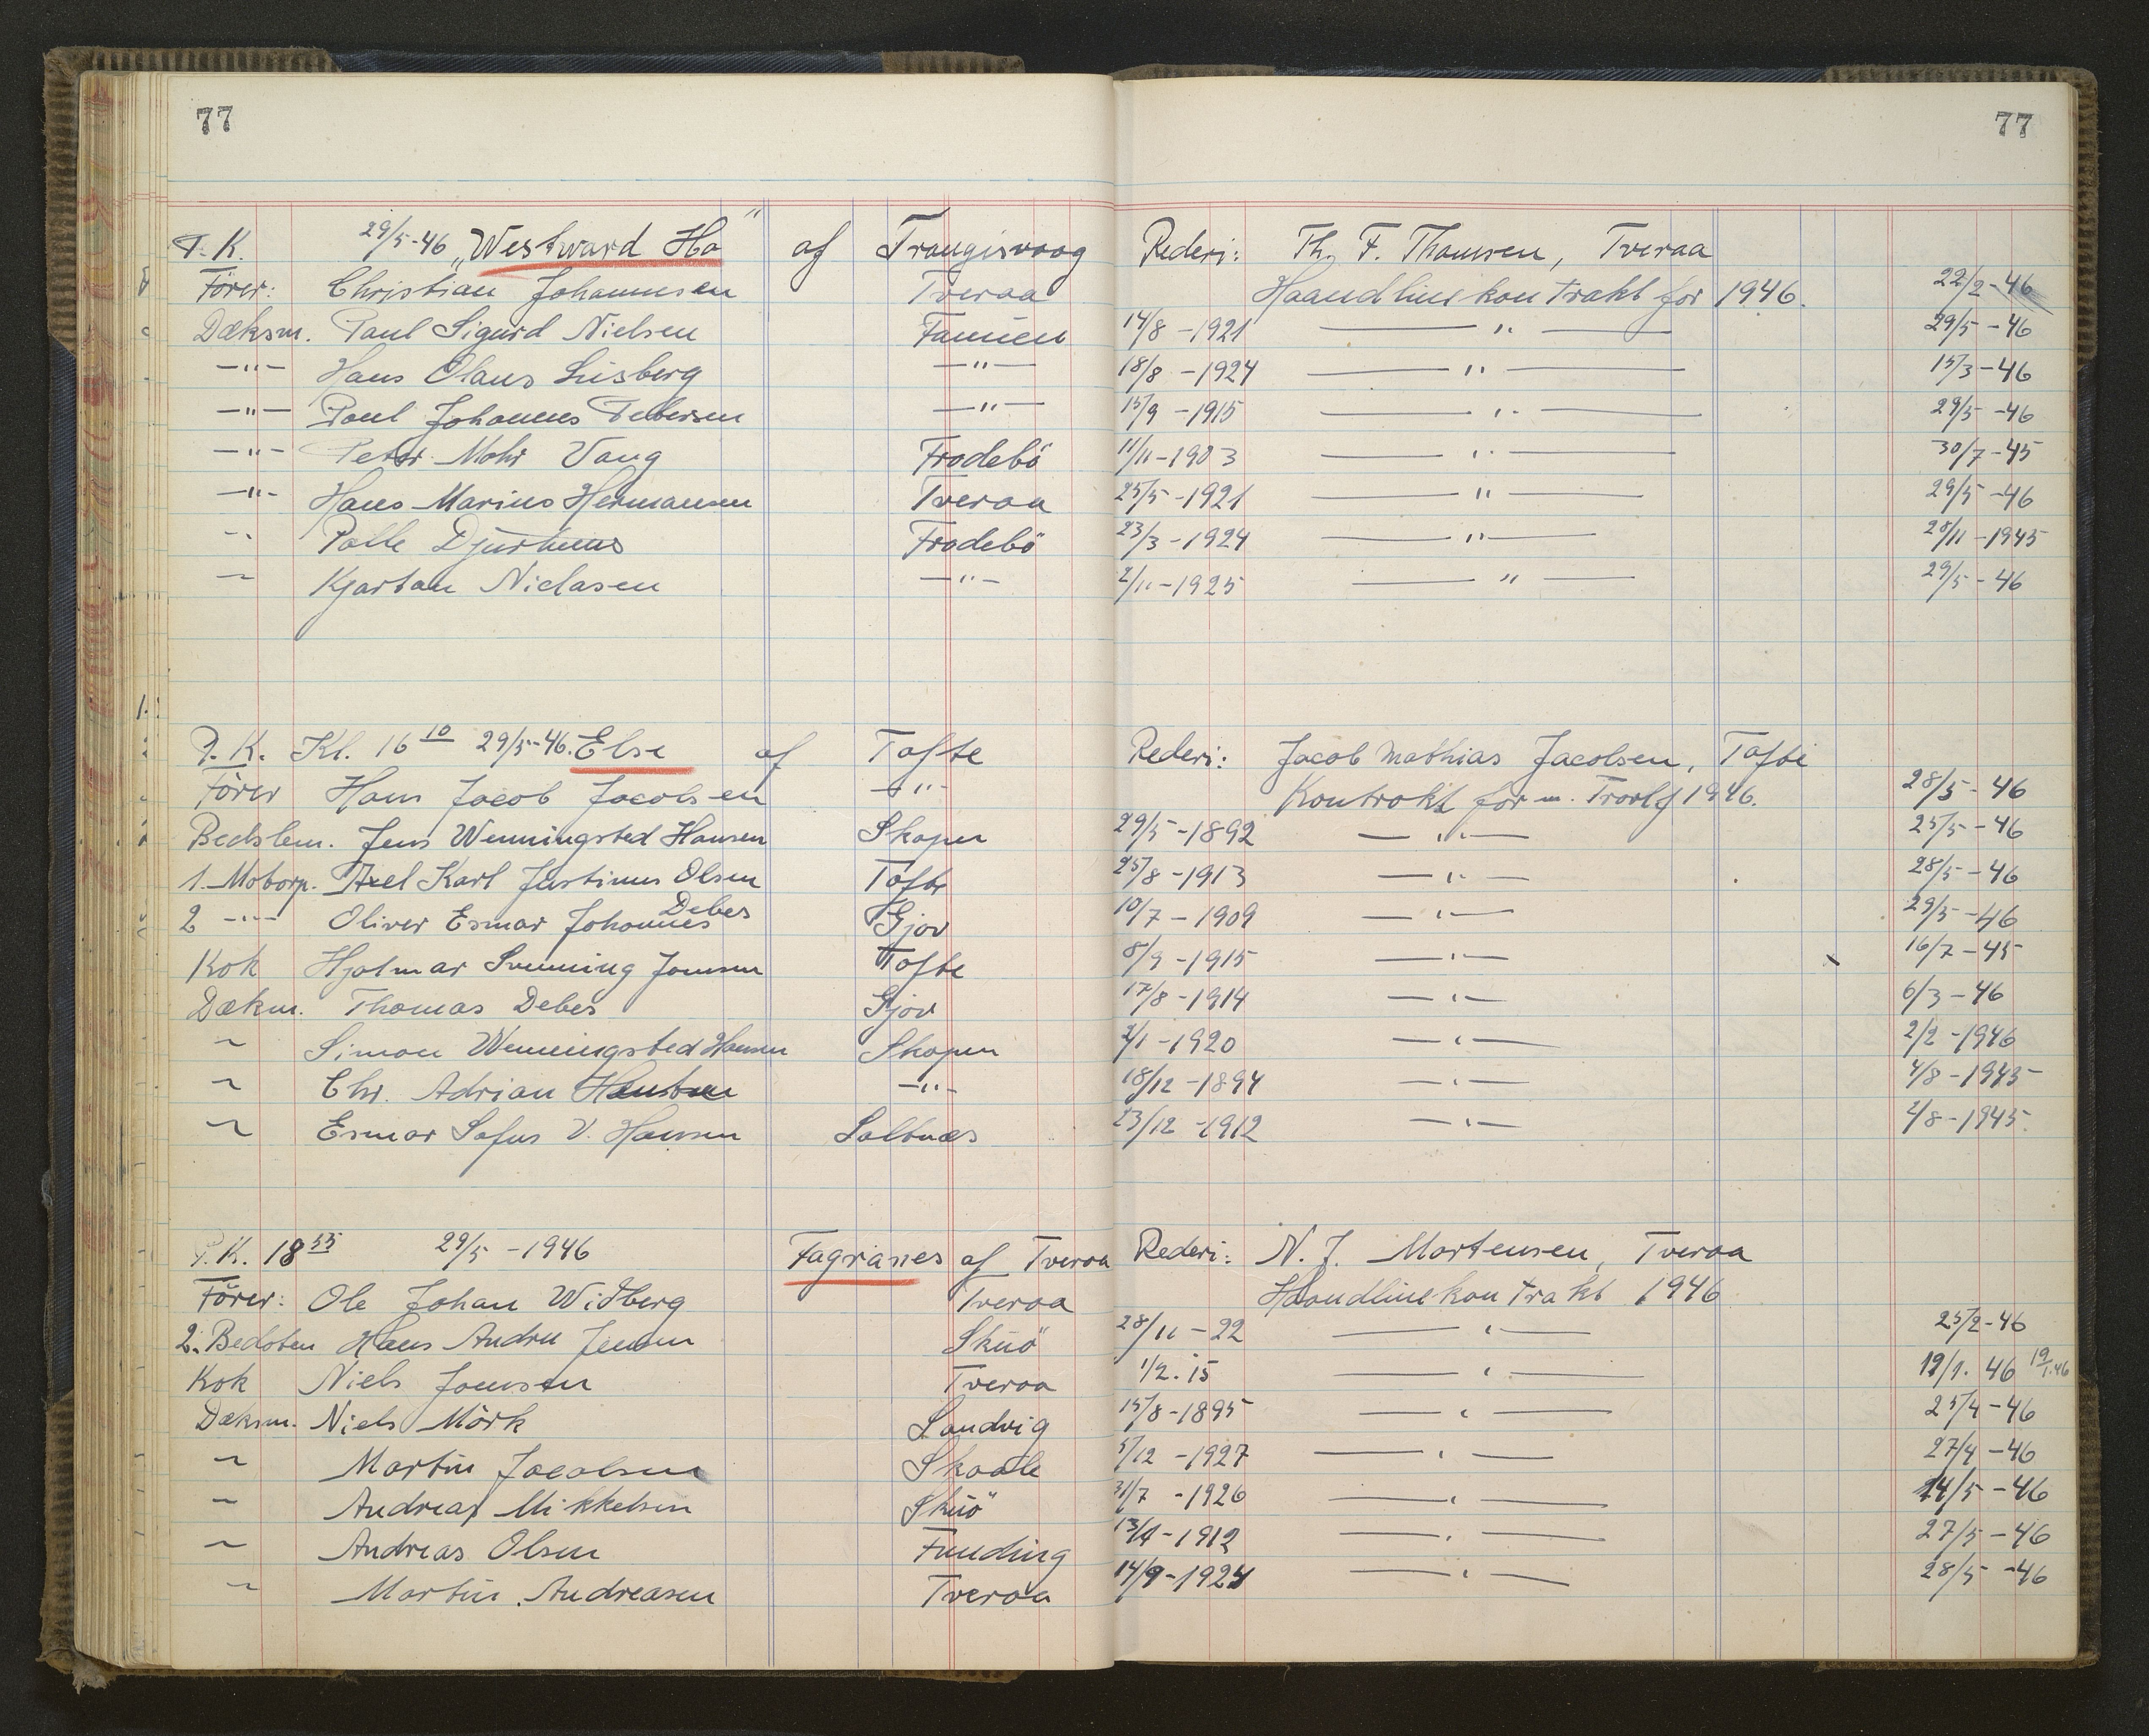 77
77
P. K. 29/5-46 „Westward Ho" af Trangisvaag Rederi: Th. F. Thomsen, Tveraa
Förer: Christian Johannesen Tveraa Haandlinekontrakt for 1946. 22/2-46
Dæksm. Paul Sigurd Nielsen Famien 14/8 -1921 — " — 29/5 -46
—"— Hans Olaus Lisberg —"— 18/8 -1924 — " — 15/3 -46
—"— Poul Johannes Petersen —"— 15/9 -1915 — " — 29/5 -46
—"— Peter Mohr Vang Frodebö 11/11-1903 — " — 30/7-45
—"— Hans Marius Hermansen Tveraa 25/5-1921 — " — 29/5 -46
" Palle Djurhuus Frodebö 23/3-1924 — " — 28/11-1945
~ Kjartan Niclasen —"— 2/11-1925 — " — 29/5 -46
P. K. Kl. 16 10 29/5-46. Else af Tofte Rederi: Jacob Mathias Jacobsen, Tofte
Förer Hans Jacob Jacobsen —"— Kontrakt for m. Trawlf 1946. 28/5-46
Bedstem. Jens Wenningsted Hansen Skopun 29/5-1892 — " — 25/5-46
1. Motorp. Axel Karl Justinus Olsen Tofte 25/8-1913 — " — 28/5-46
2 —"— Oliver Esmar Johannes Debes Gjov 10/7-1909 — " — 29/5-46
Kok Hjalmar Svenning Joensen Tofte 8/9-1915 — " — 16/7-45
Dækm. Thomas Debes Gjov 17/8-1914 — " — 6/3-46
~ Simon Wenningsted Hansen Skopun 2/1-1920 — " — 2/2-1946
~ Chr. Adrian —"— 18/12-1894 — " — 4/8-1945
~ Esmar Sofus V. Hansen Saltnæs 23/12-1912 — " — 2/8-1945
P. K. 18 55 29/5-1946 Fagranes af Tveraa Rederi: N. J. Mortensen, Tveraa
Förer: Ole Johan Widberg Tveraa Haandlinekontrakt 1946
2. Bedsten Hans Andru Jensen Skuö 28/11-22 — " — 25/2-46
Kok Niels Joensen Tveraa 1/2.15 — " — 19/1. 46 19/1.46
Dæksm. Niels Mörk Sandvig 15/8-1895 — " — 25/4-46
~ Martin Jacobsen Skaale 5/12 -1927 — " — 27/4-46
~ Andreas Mikkelsen Skuö 31/7 -1926 — " — 14/5-46
~ Andreas Olsen Funding 13/4-1912 — " — 27/5-46
~ Martin Andreasen Tveraa 14/9-1924 — " — 28/5-46